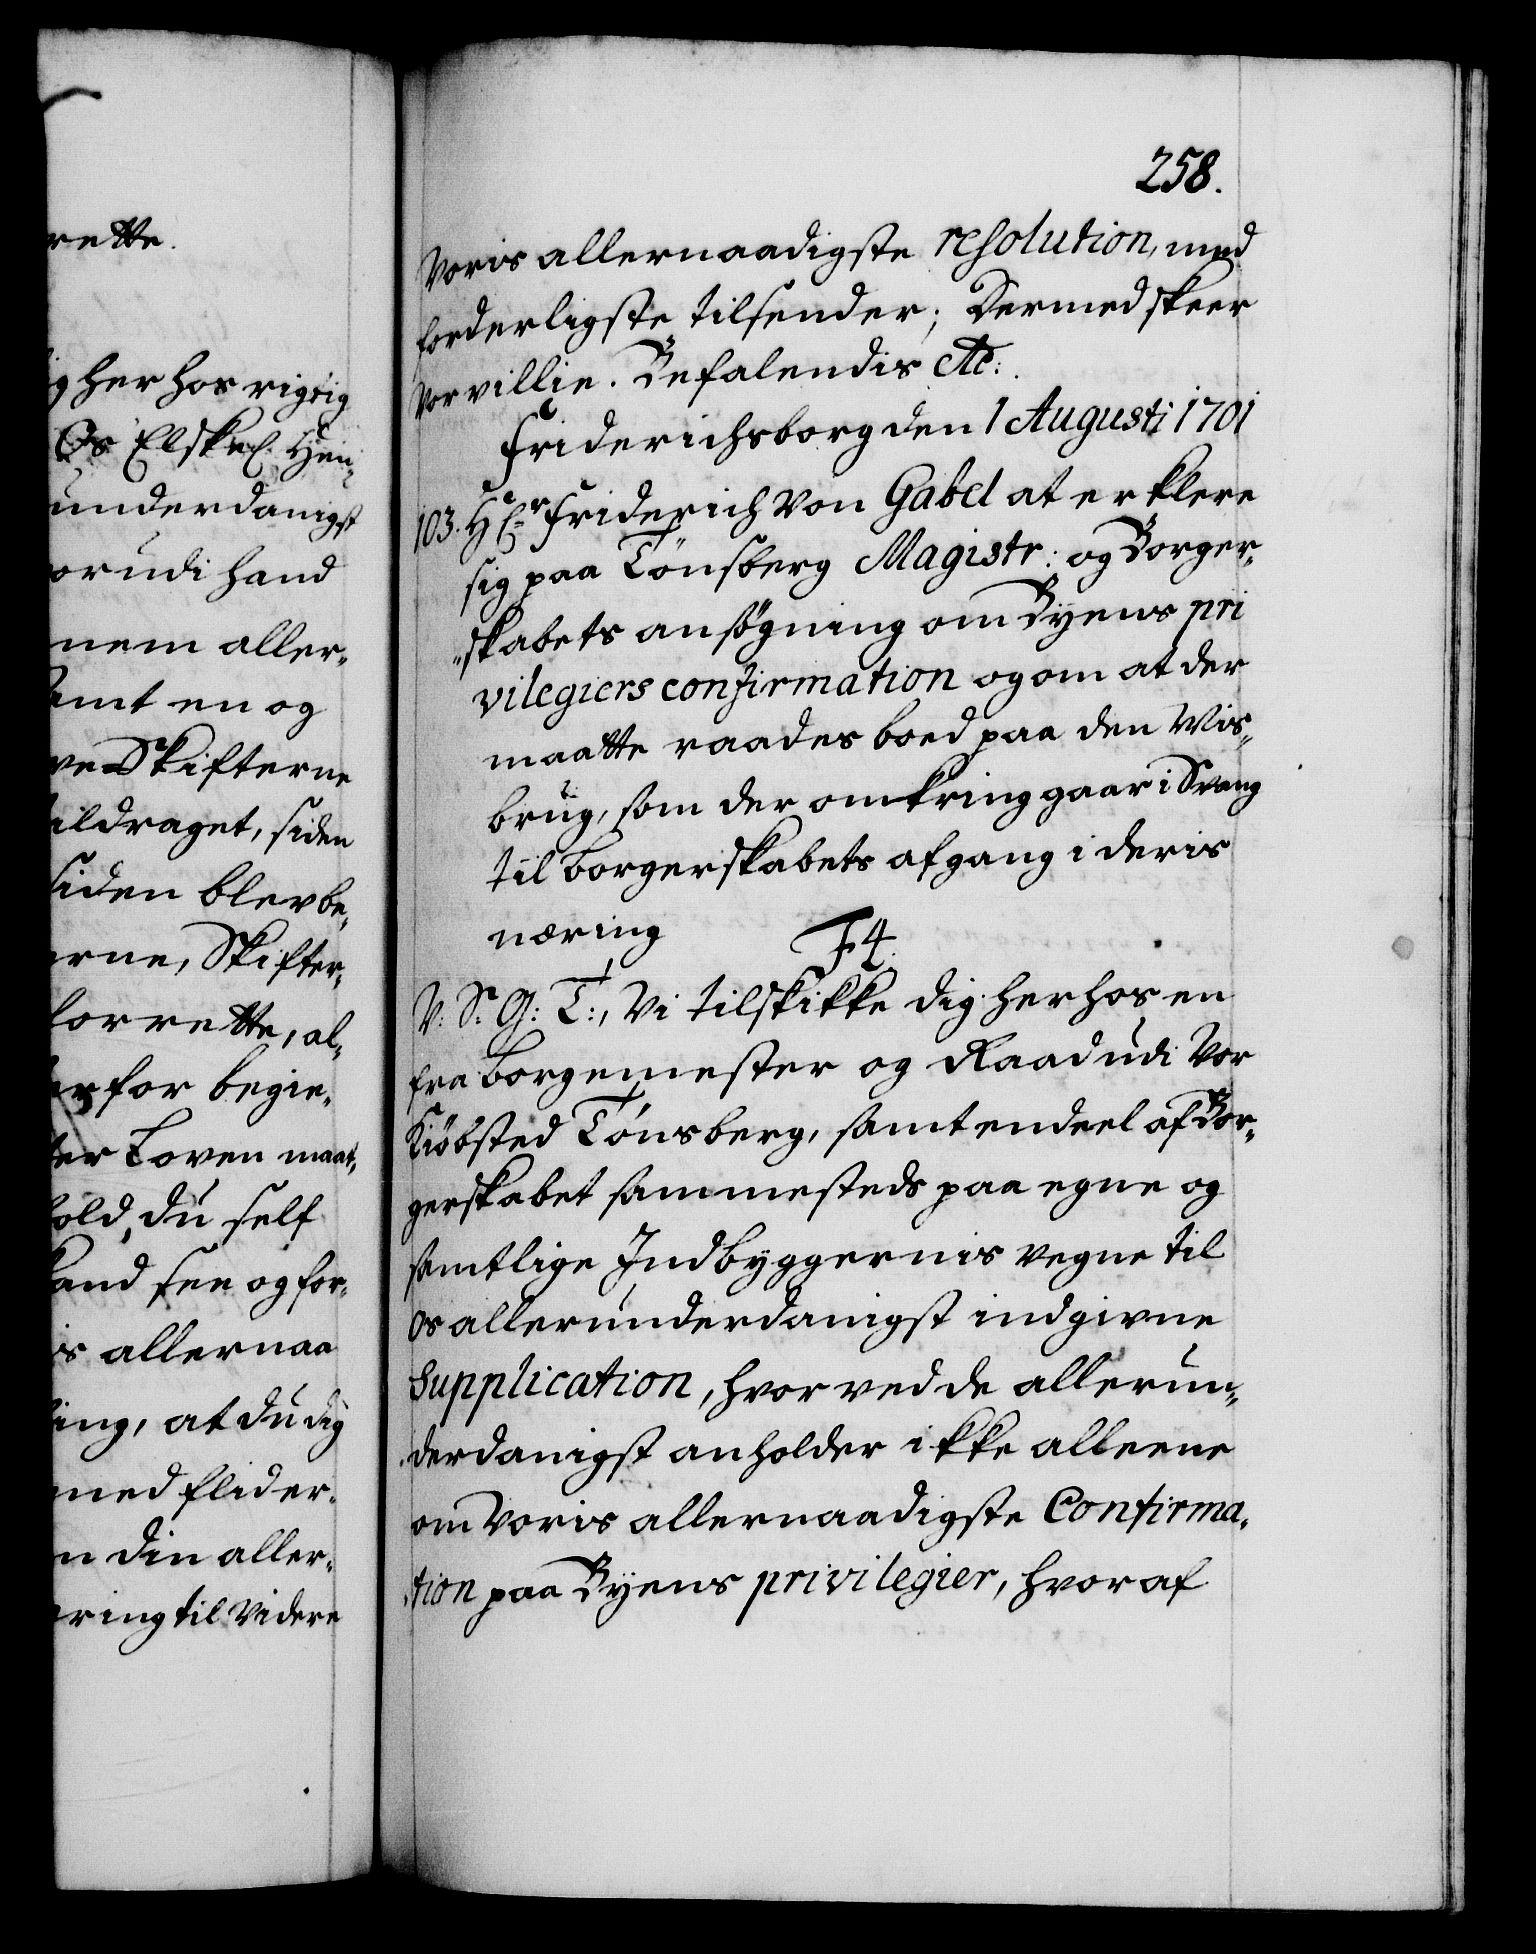 rette.
g her hos rigtig
Os Elskel. Hen¬
underdanigst
orudi hand
nem aller¬
amt en og
ve Skifterne
tildraget, siden
siden blev be¬
erne, Skifter¬
for rette, al¬
for begie¬
ter Loven maat¬
hold, du self
kand see og for¬
is allernaa
ing, at du dig
med flider¬
n din aller¬
ring til videre
258.
Voris allernaadigste resolution, med
forderligste tilsender; Dermed skeer
Vor villie. Befalendis etc:
Friderichsborg den 1 Augusti 1701
103. H Er Friderich von Gabel at erklere
sig paa Tönsberg Magistr: og Borger¬
skabets ansøgning om Byens pri
vilegiers confirmation og om at der
maatte raades boed paa den Mis¬
brug, som der omkring gaar i Svang
til borgerskabets afgang i deris
næring
F4.
V: S: G: T:, Vi tilskikke dig herhos en
fra borgemester og Raad udi Vor
Kiöbsted Tönsberg, samt endeel af Bor¬
gerskabet sammesteds paa egne og
samtlige Indbyggernis vegne til
Os allerunderdanigst indgivne
Supplication, hvorved de allerun¬
derdanigst anholder ikke alleene
om Voris allernaadigste Confirma¬
tion paa Byens privilegier, hvoraf